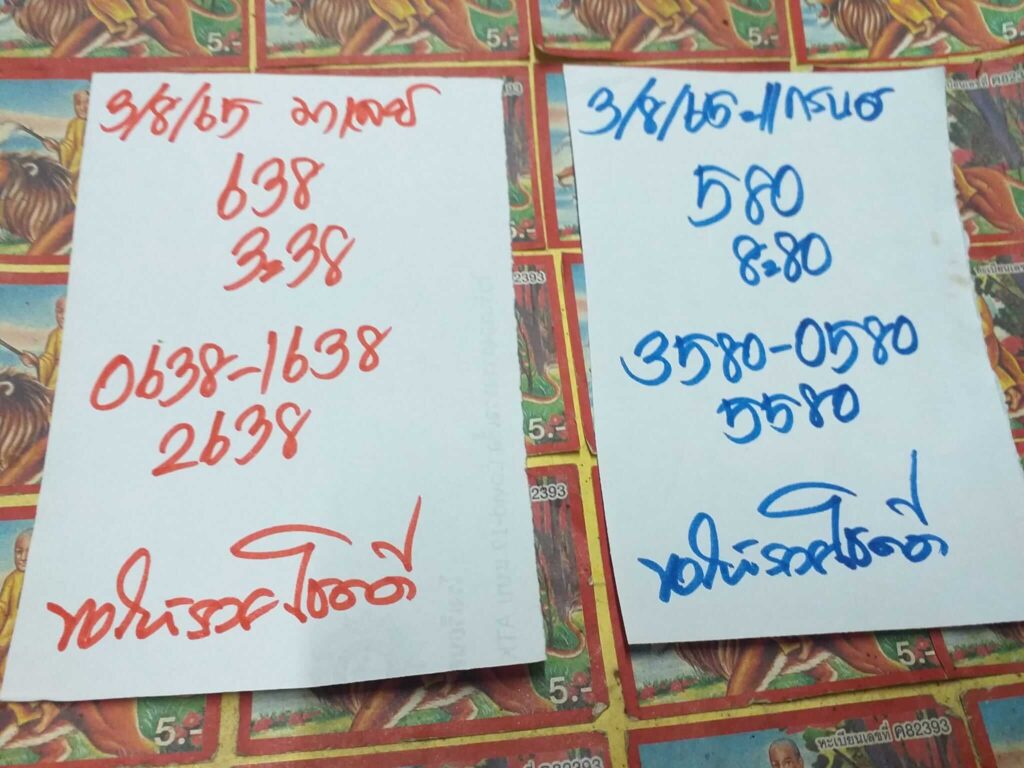 3/8/65 มาเลย์
638
3=38
0638-1638
2638
ขอให้รวยโชคดี
3/8/65
580
8=80
3580-0580
5580
ขอให้รวยโชคดี
5.-
5.-
5.-
2393
5.-
2393
5.-
5.-
5.-
ทะเบียนเลขที่ ค82393